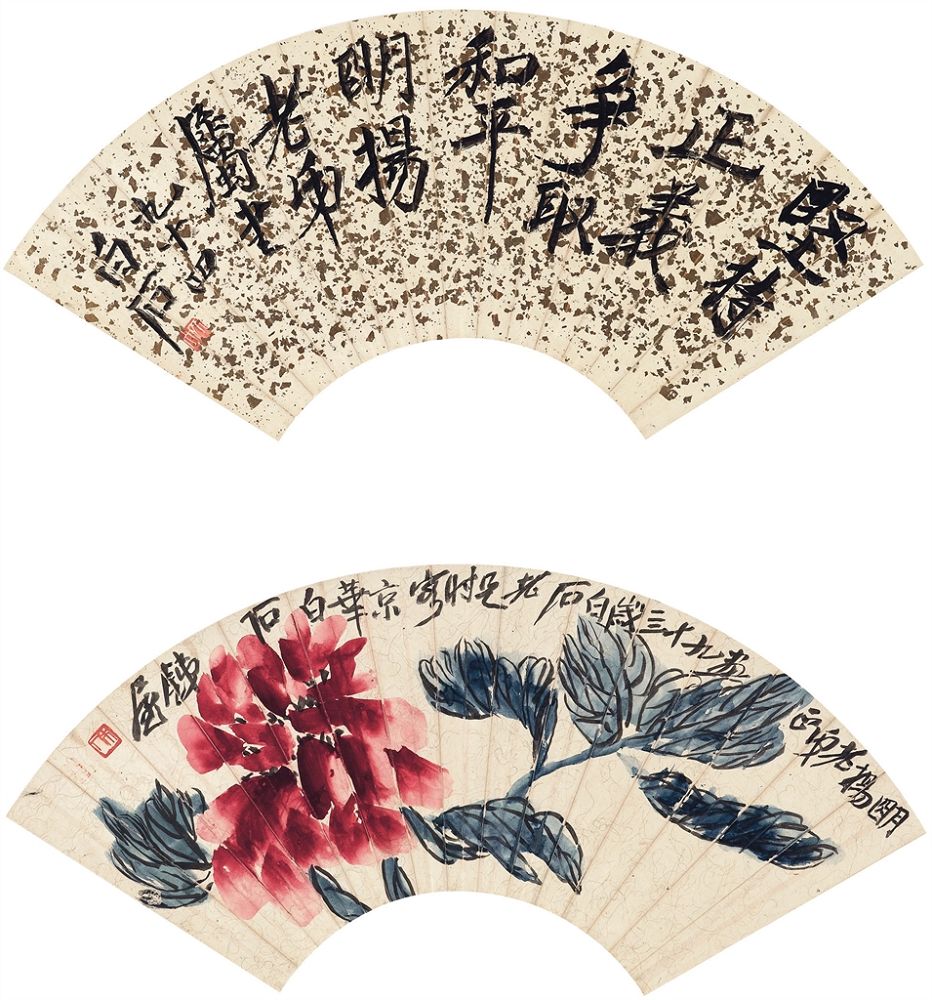 堅持
正義
爭取
和平
明揚
老弟
屬書
九十四
白石
明揚老弟正
九十三歲白石老兄時客京華白石
鐵屋